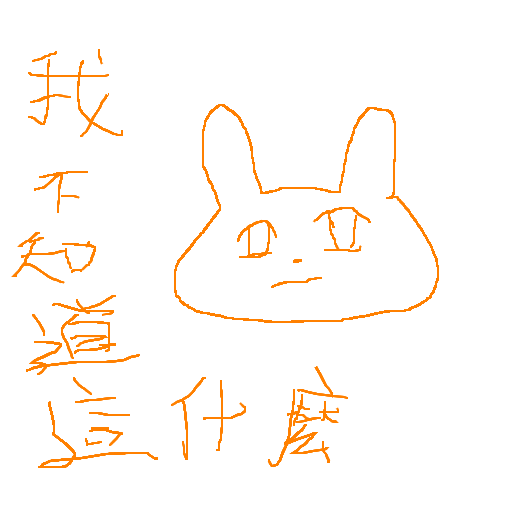 我不知道
這什麼